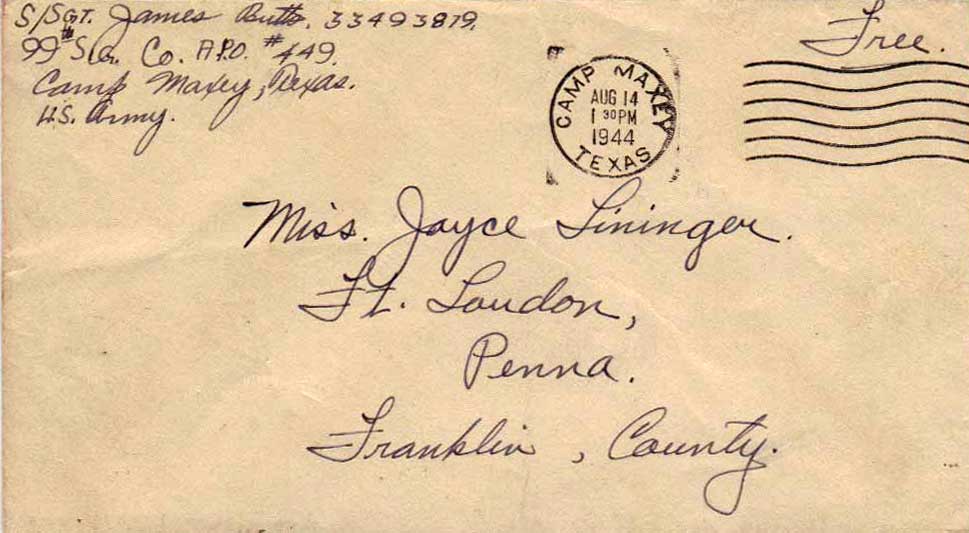 S/Sgt. James Butts. 33493879.
99th Sig. Co. A.P.O. #449.
Camp Maxey, Texas.
U.S. Army.
Free.
CAMP MAXEY
AUG 14
1 30 PM
1944
TEXAS
Miss. Joyce Lininger.
Ft. Loudon,
Penna.
Franklin, County.